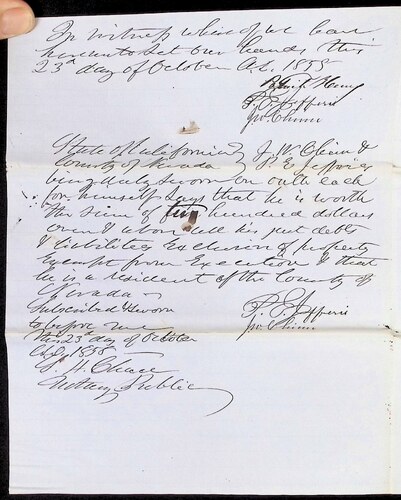 In witness whereof we have
hereunto set our hands this
23d day of October A.D. 1858
P. E. Jefferis
State of California } J. W. Chinn &
County of Nevada } P. E. Jefferis
being duly sworn on oath each
for himself says that he is worth
the sum of two hundred dollars
over & above all his just debts
& liabilities exclusive of property
exempt from Execution & that
he is a resident of the County of
Nevada
Subscribed & sworn
to before me
this 23d day of October
A.D. 1858
P. E. Jefferis
Chinn
H. Chase
Notary Public